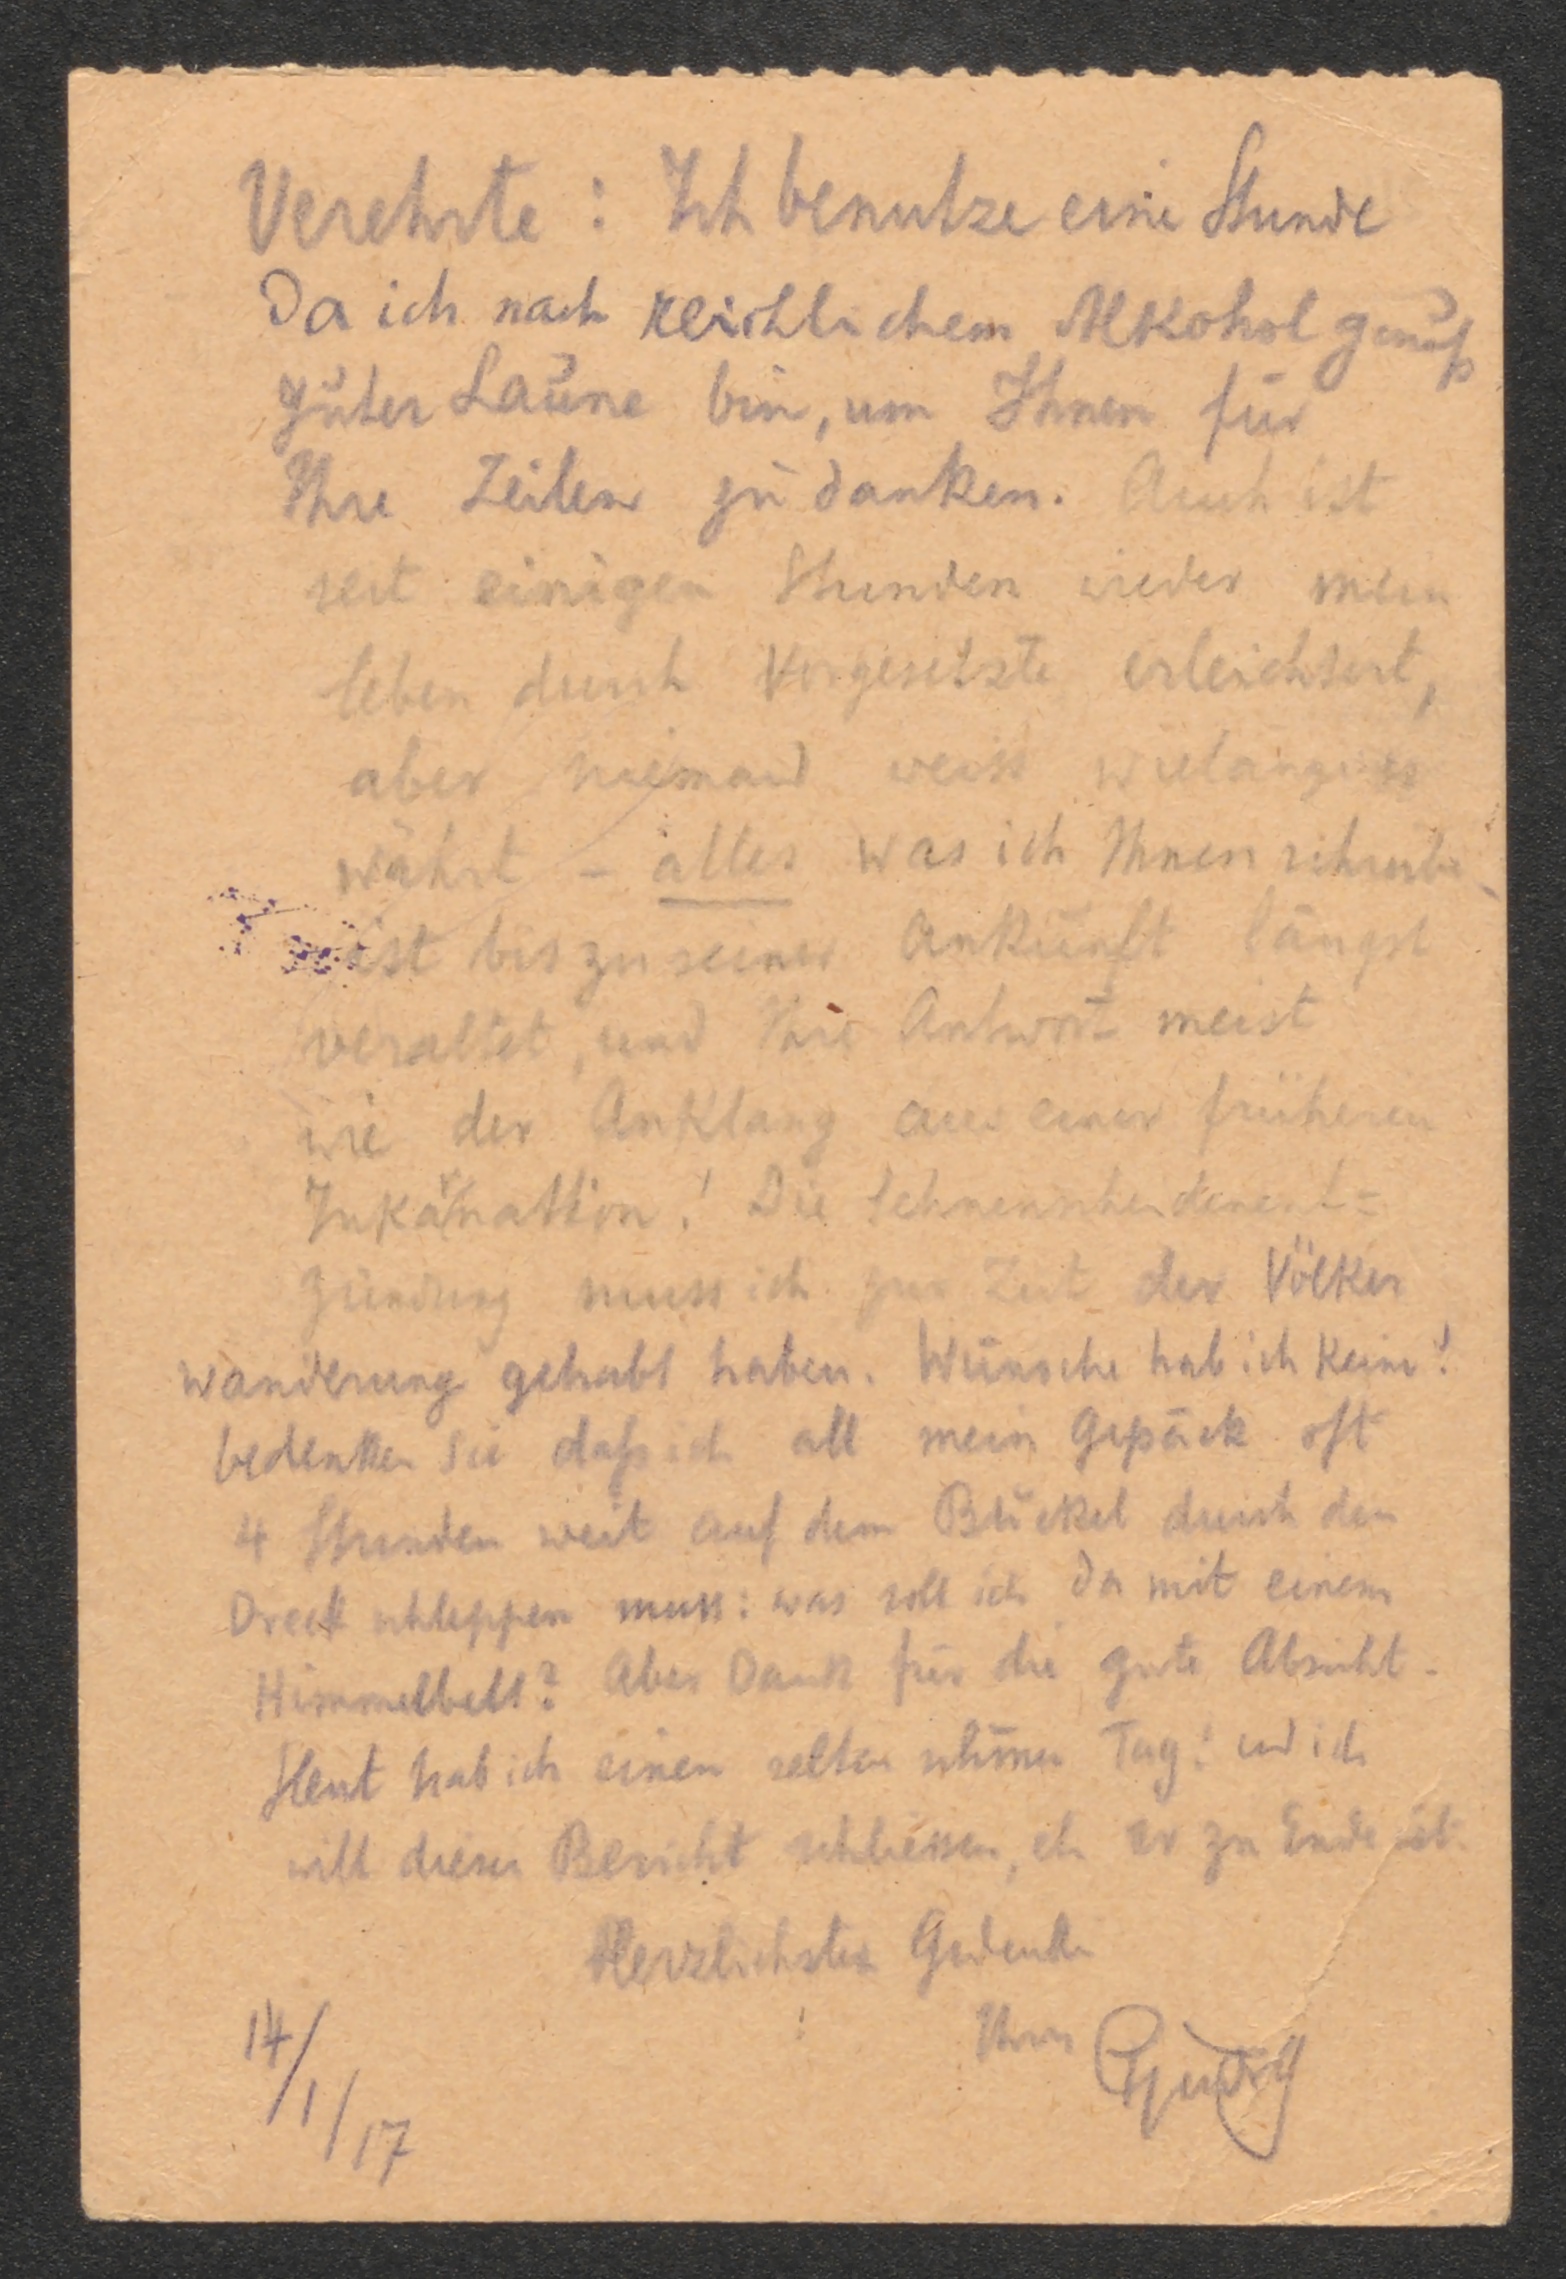 Verehrte : Ich benutze eine Stunde
Da ich nach reichlichem Alkohol genuß
guter Laune bin, um Ihnen für
Ihre Zeilen zu danken. Auch ist
seit einigen Stunden wieder mein
leben durch Vorgesetzte erleichtert,
aber niemand weiss wielange es
währt – alles was ich Ihnen schreibe
ist bis zu seiner Ankunft längst
veraltet, und Ihre Antwort meist
wie der Anklang aus einer früheren
Inkarnation! Die Sehnenscheidenent=
zündung muss ich zur Zeit der Völker
wanderung gehabt haben. Wünsche hab ich keine!
bedenken Sie daß ich all mein Gepäck oft
4 Stunden weit auf dem Buckel durch den
Dreck schleppen muss: was soll ich da mit einem
Himmelbett? Aber Dank für die gute Absicht.
Heut hab ich einen selten schönen Tag! und ich
will diesen Bericht schliessen, eh er zu Ende ist.
Herzlichstes Gedenken
Ihres
14/1/17